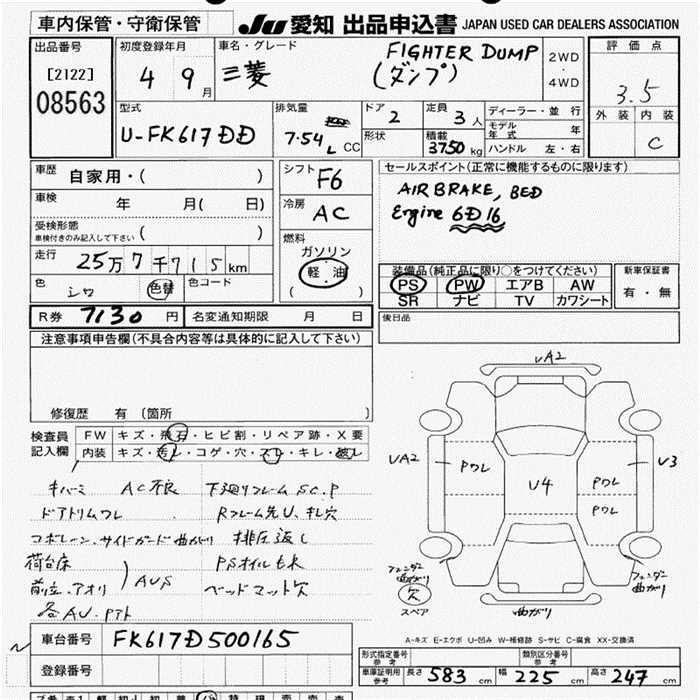 車内保管・守衛保管
JU 愛知 出品申込書 JAPAN USED CAR DEALERS ASSOCIATION
出品番号
[2122]
08563
初度登録年月
4 9月
車名・グレード
三菱
FIGHTER DUMP
(ダンプ)
2WD
・
4WD
評価点
3.5
外装 内装
C
型式
U-FK617DD
排気量
7.54L CC
ドア
2
定員
3人
形状
積載
3750kg
ディーラー・並行
モデル年式 年
ハンドル 左・右
車歴
自家用・( )
車検
年 月( 日)
受検形態
車検付きのみ記入して下さい ( )
走行
25万7千715km
色
シロ
色替
色コード
シフト
F6
冷房
AC
燃料
ガソリン
軽・油
( )
セールスポイント(正常に機能するものに限ります)
AIR BRAKE, BED
Engine 6D16
装備品(純正品に限り○をつけてください)
PS PW エアB AW
SR ナビ TV カワシート
新車保証書
有・無
R券 7130円
名変通知期限 月 日
後日品
注意事項申告欄(不具合内容等は具体的に記入して下さい)
修復歴 有(箇所 )
検査員記入欄
FW キズ・飛石・ヒビ割・リペア跡・X要
内装 キズ・汚レ・コゲ・穴・スレ・キレ・破レ
キバミ AC不良 下廻りフレームSC.P
ドアトリムワレ Rフレーム先U、キレ穴
コボレーン、サイドガード曲がり 排圧返し
荷台床 PSオイルもれ
前立、アオリ AUS ベッドマット欠
各AU.サアト
UA2
UA2
PワレU4
Pワレ
Pワレ
U3
フェンダー
曲がり
欠
スペア
曲がり
フェンダー
曲がり
A-キズ E-エクボ U-凹み W-補修跡 S-サビ C-腐食 XX-交換済
車台番号
FK617D500165
登録番号
形式指定番号
参考
類別区分番号
参考
車庫証明用
参考
長さ 583cm
幅 225cm
高さ 247cm